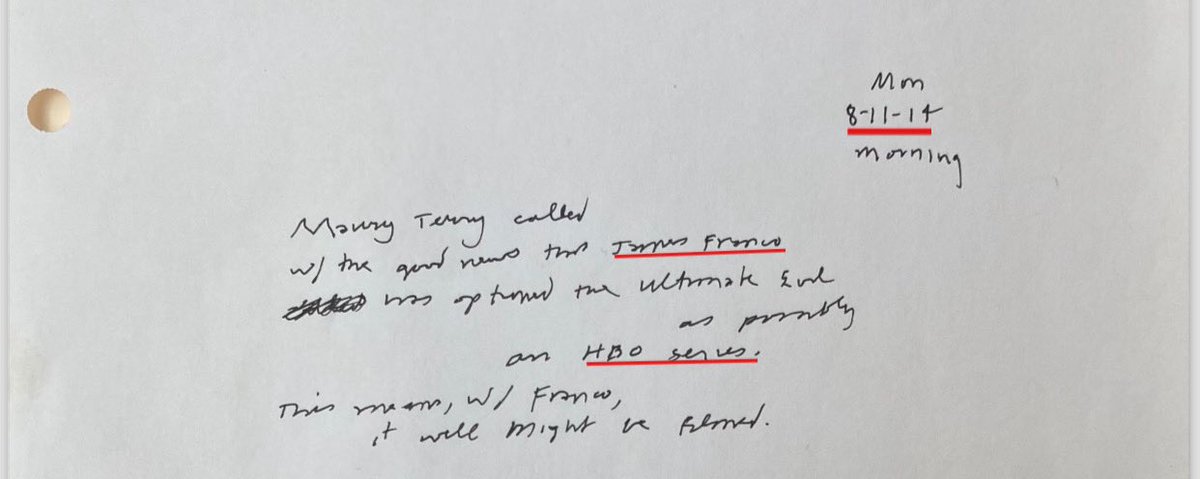 Mon
8-11-14
morning
Maury Terry called
w/ the good news that James Franco
has optioned the Ultimate Evil
as possibly
an HBO series.
This means, w/ Franco,
it well might be filmed.